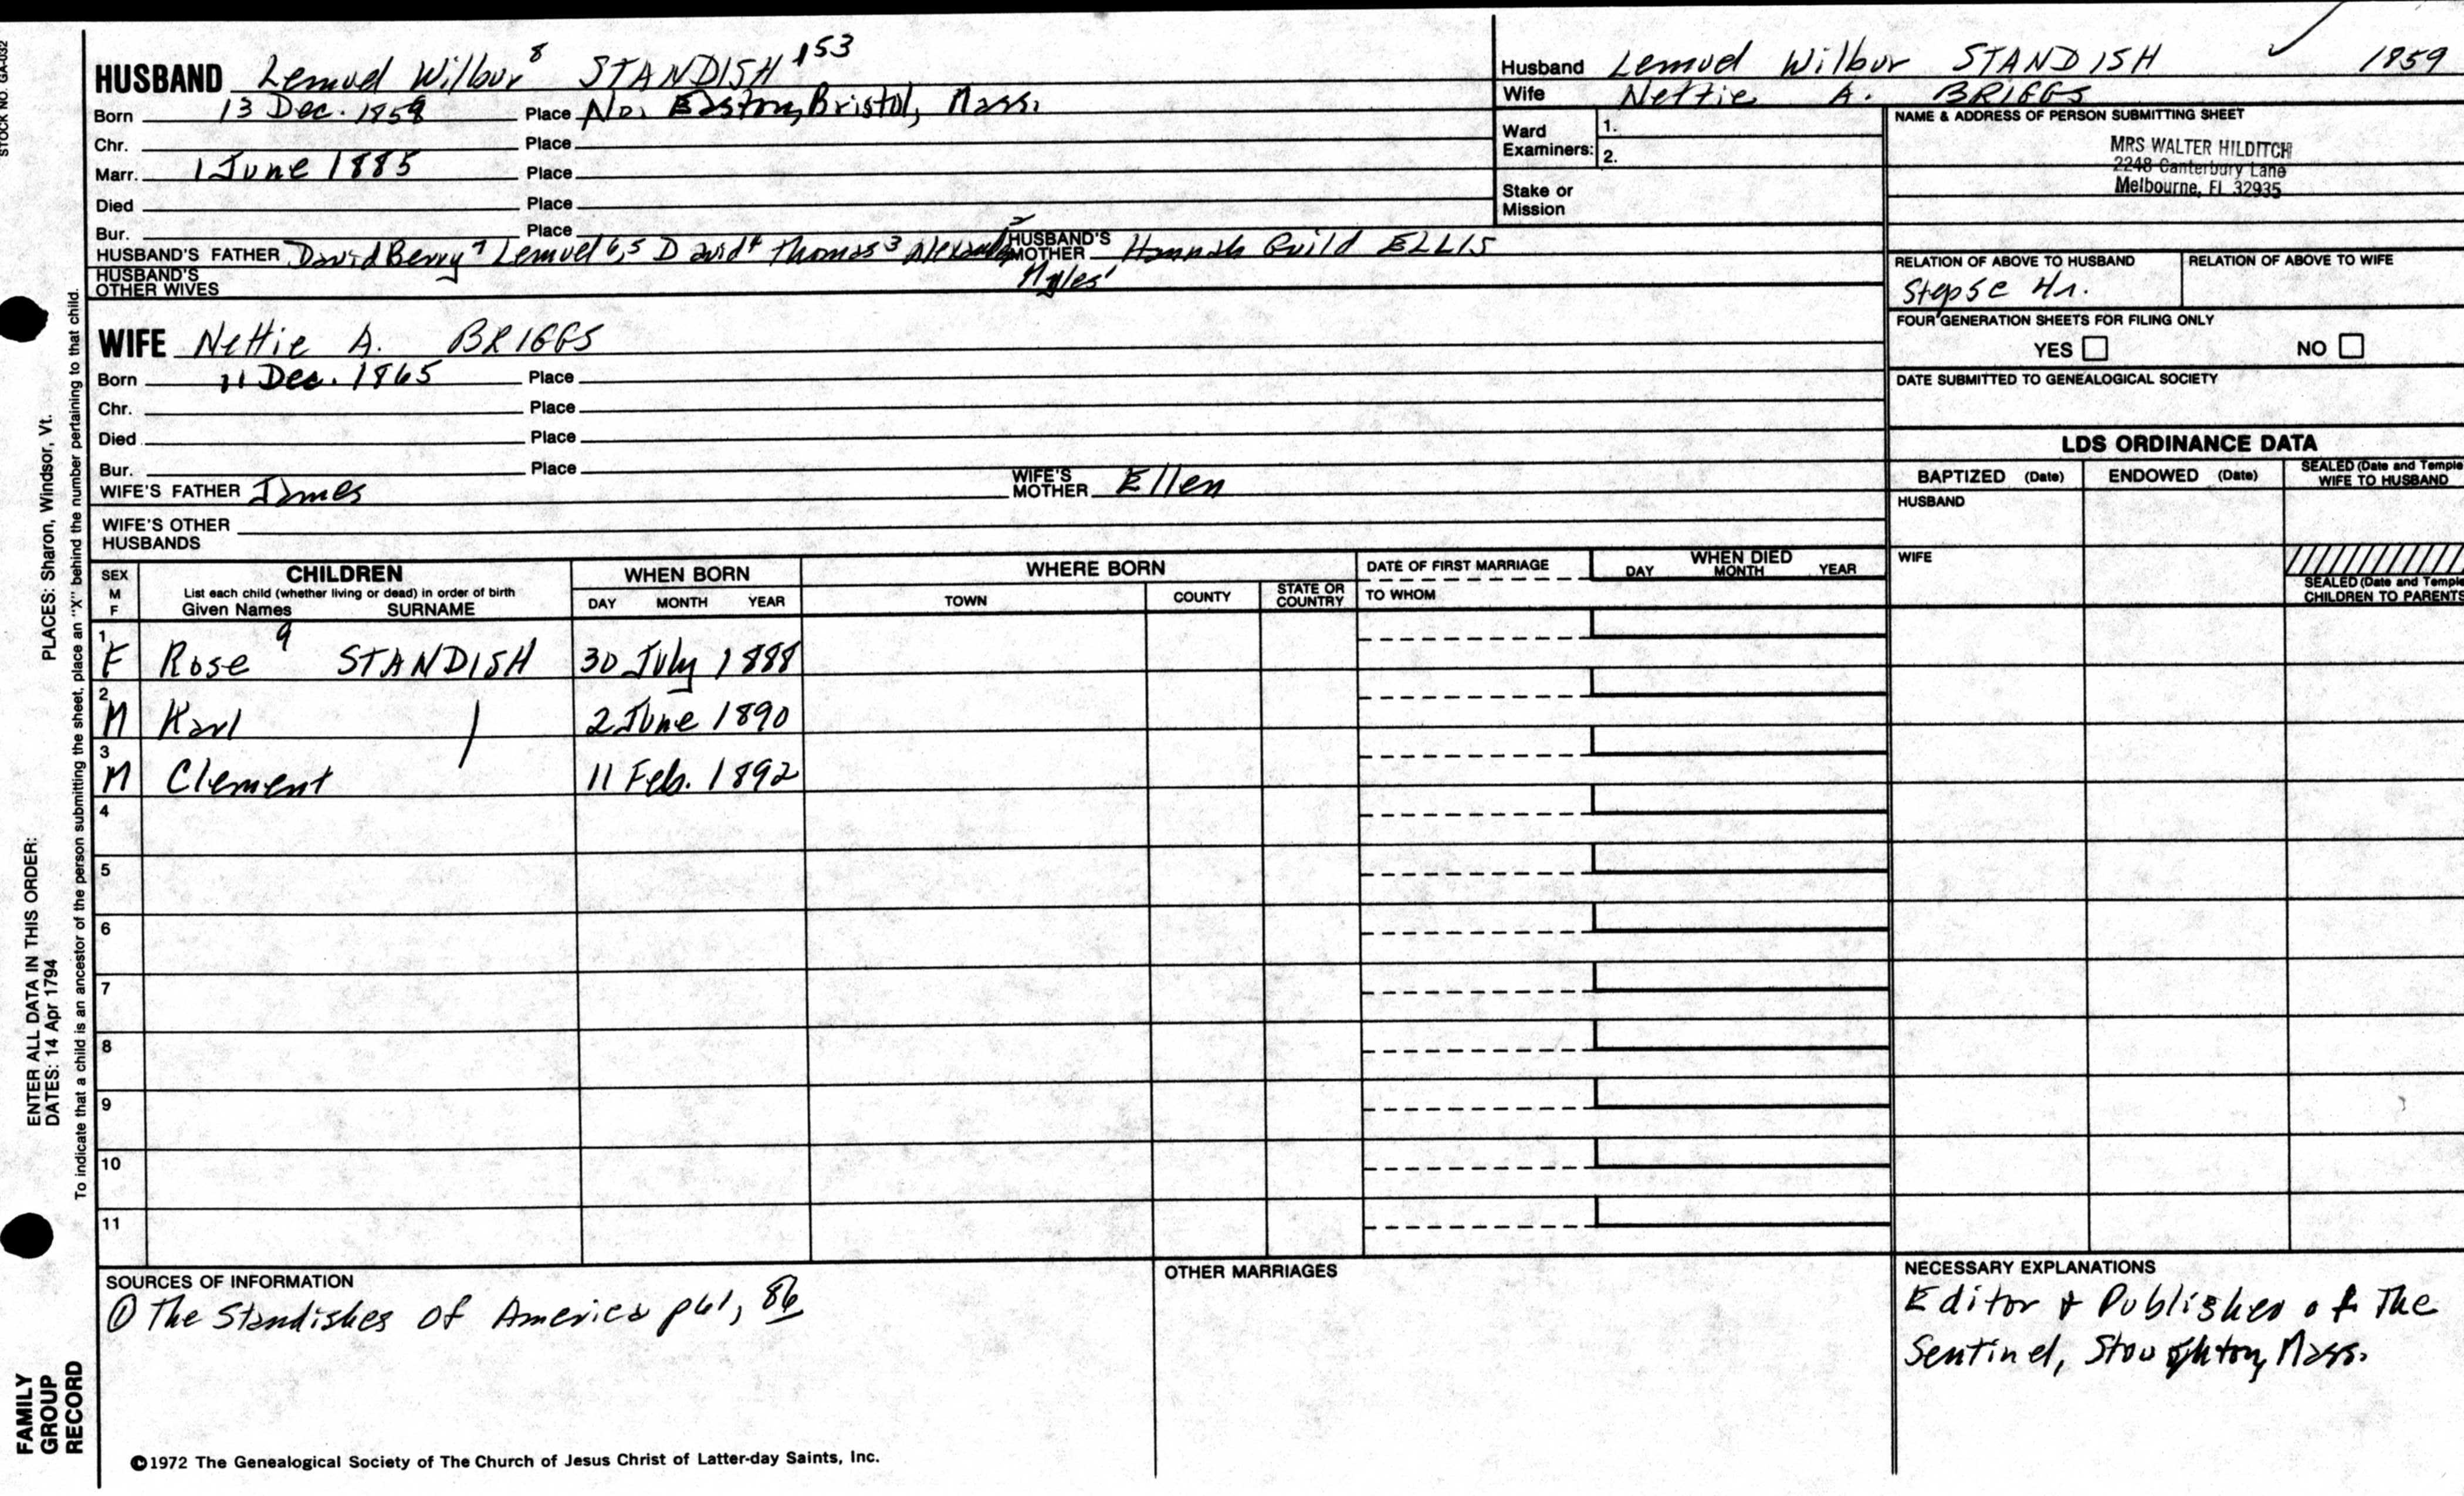 STOCK NO. GA-032
HUSBAND Lemuel Wilbur 8 STANDISH 153
Born 13 Dec. 1859 Place No. Easton, Bristol, Mass.
Chr. Place
Marr. 1 June 1885 Place
Died Place
Bur. Place
HUSBAND'S FATHER David Berry 7 Lemuel 6,5 David 4 Thomas 3 Alexander 2 Myles 1 HUSBAND'S MOTHER Hannah Guild ELLIS
HUSBAND'S OTHER WIVES
Husband Lemuel Wilbur STANDISH ✓ 1859
Wife Nettie A. BRIGGS
Ward Examiners: 1.
2.
Stake or Mission
NAME & ADDRESS OF PERSON SUBMITTING SHEET
MRS WALTER HILDITCH
2248 Canterbury Lane
Melbourne, Fl 32935
RELATION OF ABOVE TO HUSBAND RELATION OF ABOVE TO WIFE
FOUR GENERATION SHEETS FOR FILING ONLY
YES NO
DATE SUBMITTED TO GENEALOGICAL SOCIETY
WIFE Nettie A. BRIGGS
Born 11 Dec. 1865 Place
Chr. Place
Died Place
Bur. Place
WIFE'S FATHER James WIFE'S MOTHER Ellen
WIFE'S OTHER HUSBANDS
LDS ORDINANCE DATA
BAPTIZED (Date) ENDOWED (Date) SEALED (Date and Temple WIFE TO HUSBAND
HUSBAND
WIFE
SEALED (Date and Temple CHILDREN TO PARENTS
SEX M F
CHILDREN
List each child (whether living or dead) in order of birth
Given Names SURNAME
WHEN BORN
DAY MONTH YEAR
WHERE BORN
TOWN COUNTY STATE OR COUNTRY
DATE OF FIRST MARRIAGE
TO WHOM
WHEN DIED
DAY MONTH YEAR
1 F Rose 9 STANDISH 30 July 1888
2 M Karl 2 June 1890
3 M Clement 11 Feb. 1892
4
5
6
7
8
9
10
11
SOURCES OF INFORMATION
① The Standishes of America p61, 86
OTHER MARRIAGES
NECESSARY EXPLANATIONS
Editor & Publisher of The
Sentinel, Stoughton, Mass.
©1972 The Genealogical Society of The Church of Jesus Christ of Latter-day Saints, Inc.
FAMILY GROUP RECORD
ENTER ALL DATA IN THIS ORDER:
DATES: 14 Apr 1794
PLACES: Sharon, Windsor, Vt.
To indicate that a child is an ancestor of the person submitting the sheet, place an "X" behind the number pertaining to that child.